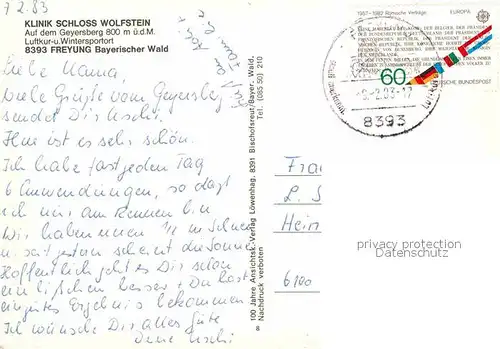 7.2.83
KLINIK SCHLOSS WOLFSTEIN
Auf dem Geyersberg 800 m ü.d.M.
Luftkur-u.Wintersportort
8393 FREYUNG Bayerischer Wald
Liebe Mama,
viele Grüße vom Geyersberg
sendet Dir Uschi.
Hier ist es sehr schön.
Ich habe fast jeden Tag
6 Anwendungen, so daß
ich nur am Rennen bin
Wir haben einen 1/2 m Schnee
u. seit gestern scheint die Sonne
Hoffentlich geht es Dir schon
ein bißchen besser + Du hast
ein gutes Ergebnis bekommen
Ich wünsche Dir alles Gute
Deine Uschi
100 Jahre Ansichtsk.-Verlag Löwenhag, 8391 Bischofsreut/Bayer. Wald,
Nachdruck verboten Tel. (085 50) 210
8
1957-1982 Römische Verträge EUROPA
60
DEUTSCHE BUNDESPOST
8393
Frau
L. S
Hein
6100
privacy protection
Datenschutz